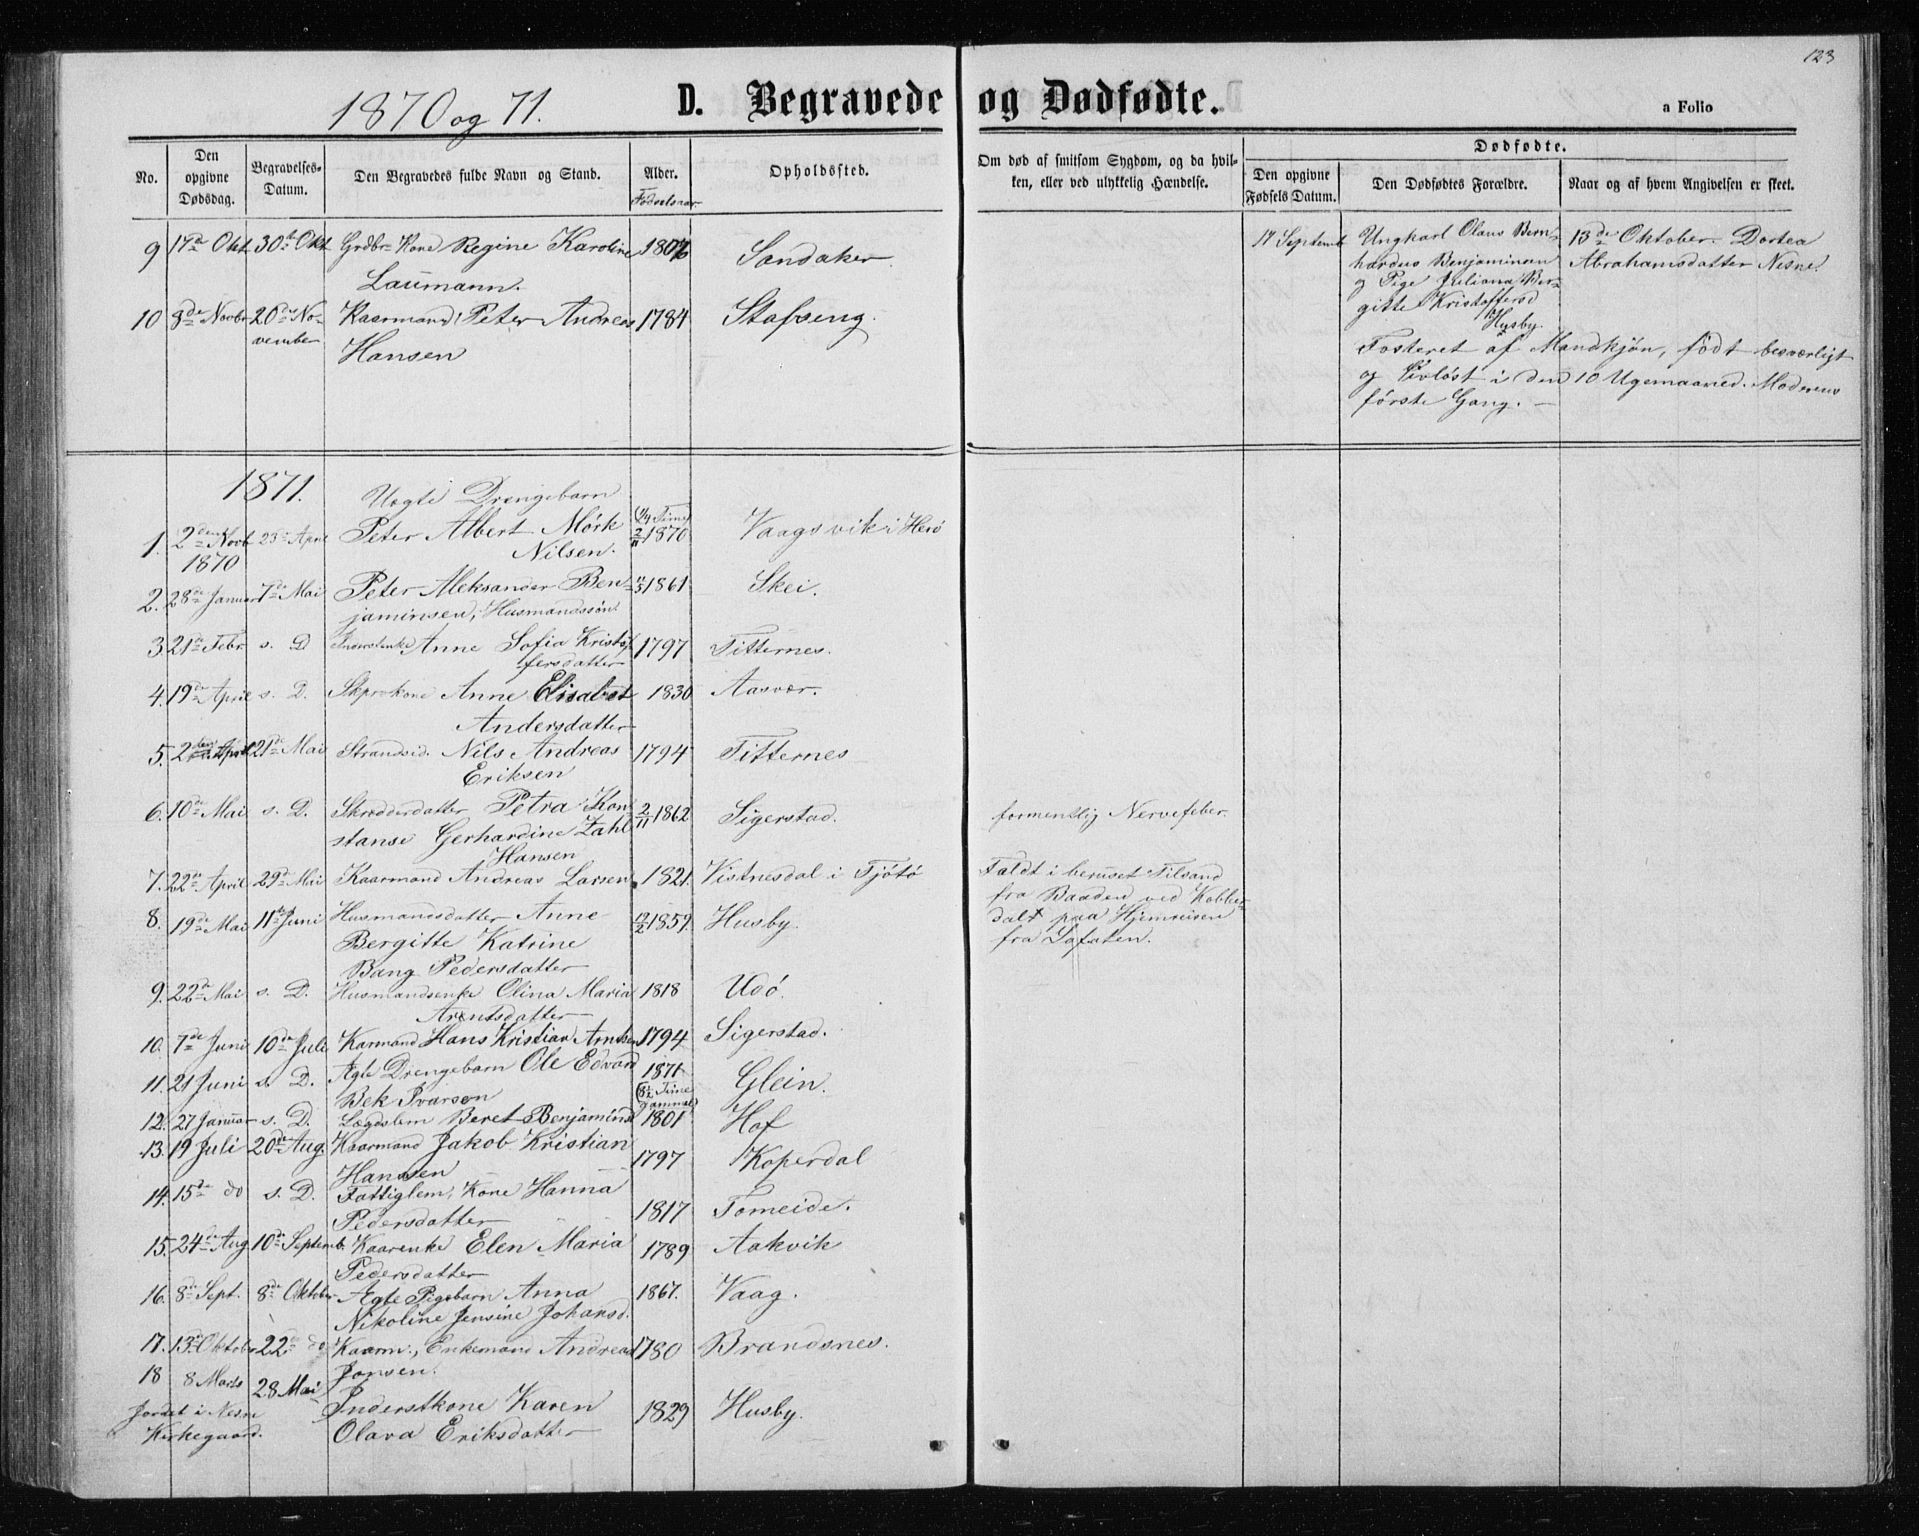 123
1870 og 71.
D. Begravede og Dødfødte.
a Folio
No.
Den opgivne Dødsdag.
Begravelses-Datum.
Den Begravedes fulde Navn og Stand.
Alder.
Fødselsaar
Opholdssted.
Om død af smitsom Sygdom, og da hvil-
ken, eller ved ulykkelig Hændelse.
Dødfødte.
Den opgivne Fødsels Datum.
Den Dødfødtes Forældre.
Naar og af hvem Angivelsen er skeet.
9 17de Okt. 30te Okt. Grdbr. Kone Regine Karoline 1807 Sandaker.
Laumann.
10 8de Novbr 20de No- Kaarmand, Peter Andreas 1784 Stafseng.
vember Hansen
17 Septemb. Ungkarl Olaus Bern- 13de Oktober. Dortea
hardus Benjaminsen Abrahamsdatter Nesne.
og Pige Juliana Ber-
gitte Kristoffersd
Husby.
Fosteret af Mandkjøn, født besværligt
og livløst i den 10 Ugemaaned. Moderens
første Gang. —
1871.
Uægte Drengebarn
1. 2den Novb 23de April Peter Albert Mørk 2/11 1870 Vaagsvik i Herø
1870 Nilsen.
2. 28de Januar 7de Mai Peter Aleksander Ben- 1861 Skei.
jaminsen, Husmandssøn.
3 21de Febr s. D Inderstenke Anne Sofia Kristof- 1797 Titternes.
fersdatter
4. 19de April s. D. Anne Elisabet 1830 Aasvær.
Andersdatter
5. 2den April 21de Mai Strandsid. Nils Andreas 1794 Titternes
Eriksen
6. 10de Mai s. D. Skrædderdatter Petra Kon- 2/11 1862 Sigerstad. formentlig Nervefeber.
stanse Gerhardine Zahl
Hansen
7. 22de April 29de Mai Kaarmand Andreas Larsen 1821. Vistnesdal i Tjøtø Faldt i beruset Tilstand
fra Baaden ved Kobber-
dal paa Hjemreisen
fra Lofoten.
8. 19de Mai 11te Juni Husmandsdatter Anne 12/2 1859. Husby.
Bergitte Katrine
Bang Pedersdatter
9. 22de Mai s. D. Husmandsenke Olina Maria 1818 Udø.
Arentsdatter
10. 7de Juni 10de Juli Karmand Hans Kristian Arntsen 1794 Sigerstad.
11. 21 Juni s. D. Ægte Drengebarn Ole Edvard 1871 Glein.
Bek Ivarsen (8½ Time Gammel)
12. 27 Januar s. D. Lægdslem Beret Benjaminsd 1801 Hof
13. 19 Juli 20de Aug. Kaarmand Jakob Kristian 1797 Koperdal
Hansen
14. 15de do s. D. Fattiglem, Kone Hanna 1817 Tomeide.
Pedersdatter
15. 24de Aug. 10de Septemb. Kaarenke Elen Maria 1789 Aakvik
Pedersdatter
16. 8de Sept. 8de Oktober Ægte Pigebarn Anna 1867. Vaag.
Nikoline Jensine Johansd.
17. 13de Oktober 22de do Kaarm., Enkemand Andreas 1780 Brandsnes.
Jonsen.
18 8 Marts 28 Mai Inderstkone Karen 1829 Husby.
Jordet i Nesne Olava Eriksdatter
Kirkegaard.